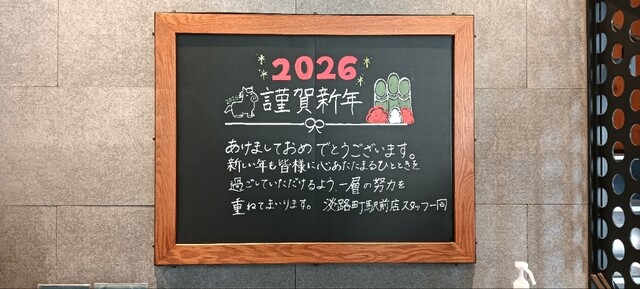 2026
謹賀新年
あけましておめでとうございます。
新しい年も皆様に心あたたまるひとときを
過ごしていただけるよう、一層の努力を
重ねてまいります。 淡路町駅前店スタッフ一同